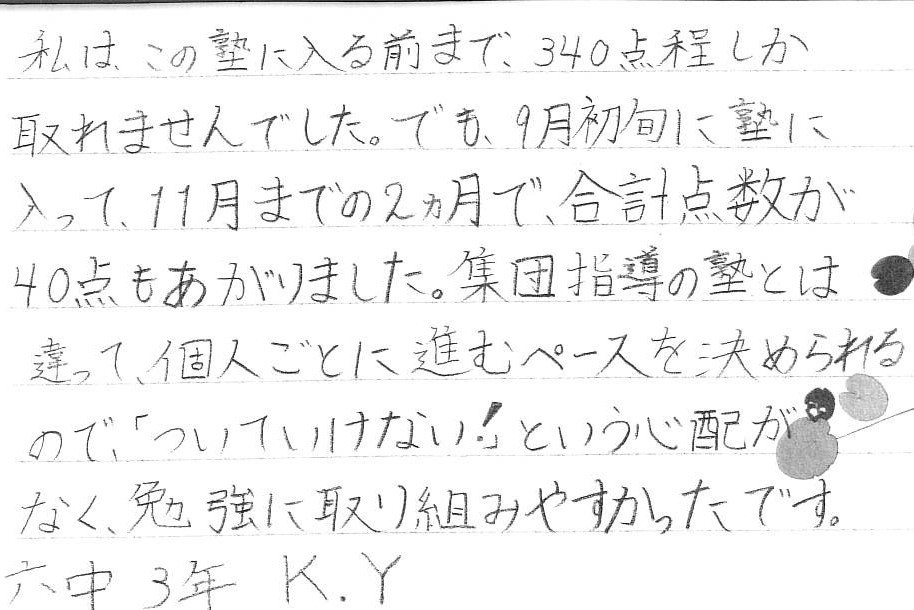 私は、この塾に入る前まで、340点程しか
取れませんでした。でも、9月初旬に塾に
入って、11月までの2ヵ月で、合計点数が
40点もあがりました。集団指導の塾とは
違って、個人ごとに進むペースを決められる
ので、「ついていけない!」という心配が
なく、勉強に取り組みやすかったです。
六中 3年 K.Y